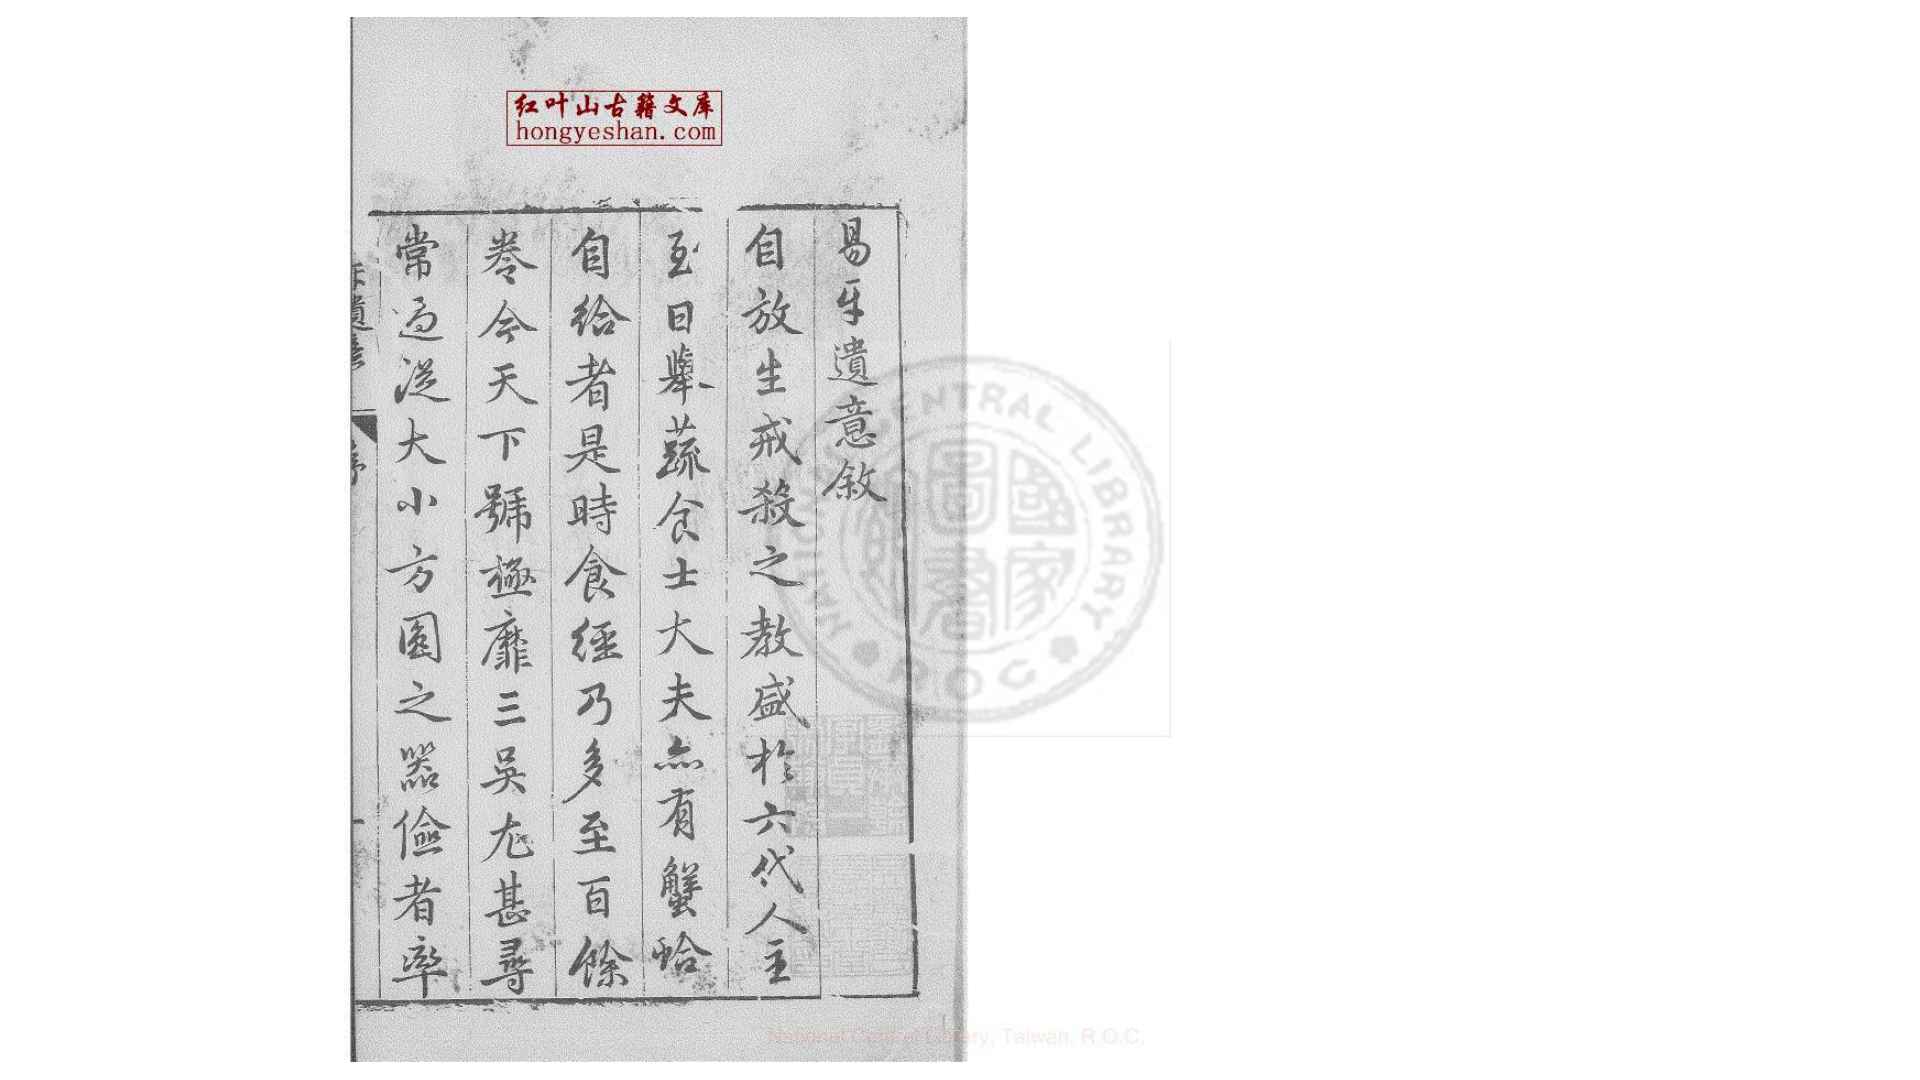 红叶山古籍文库
hongyeshan.com
易牙遺意敘
自放生戒殺之教盛於六代人主
至日舉蔬食士大夫亦有蟹蛤
自給者是時食經乃多至百餘
卷今天下號極靡三吳尤甚尋
常過從大小方圓之器儉者率
遺意
序
一
NATIONAL CENTRAL LIBRARY
R.O.C
國家圖書
National Central Library, Taiwan, R.O.C.